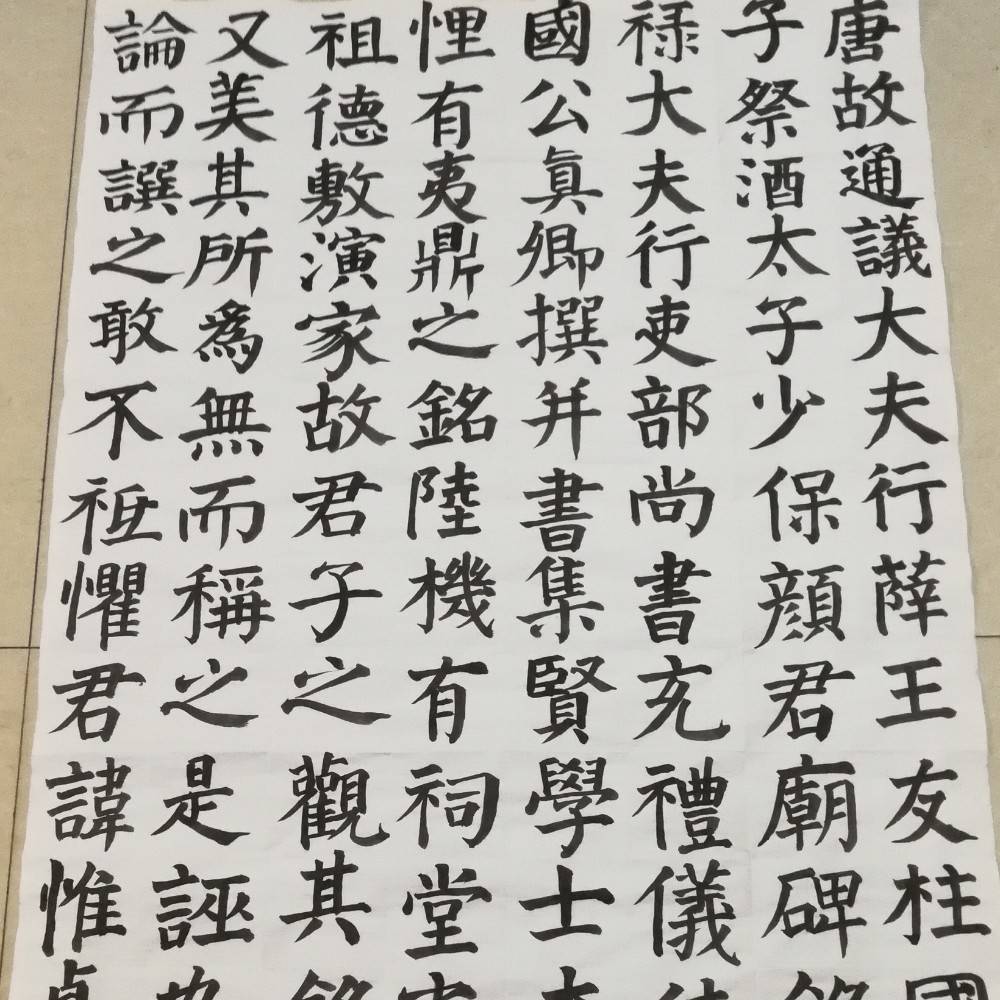 唐故通議大夫行薛王友柱國
子祭酒太子少保顔君廟碑銘
禄大夫行吏部尚書充禮儀
國公眞卿撰并書集賢學士
悝有夷鼎之銘陸機有祠堂
祖德敷演家故君子之觀其銘
又美其所爲無而稱之是誣也
論而譔之敢不祗懼君諱惟貞